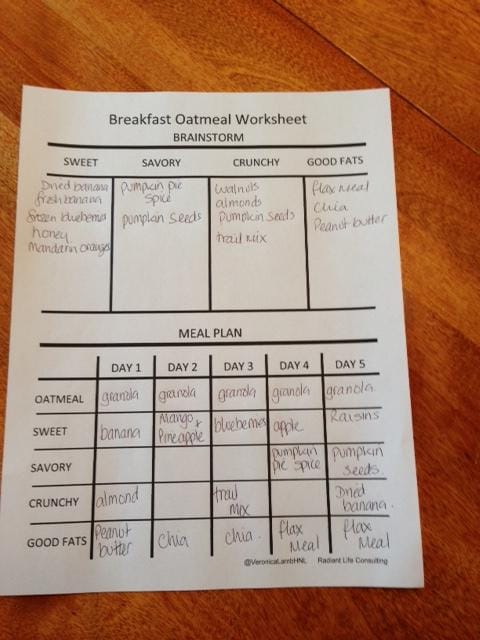 Breakfast Oatmeal Worksheet
BRAINSTORM
SWEET SAVORY CRUNCHY GOOD FATS
Dried banana
fresh banana
frozen blueberries
honey
Mandarin oranges
pumpkin pie
spice
pumpkin seeds
walnuts
almonds
Pumpkin seeds
trail mix
flax meal
chia
Peanut butter
MEAL PLAN
DAY 1 DAY 2 DAY 3 DAY 4 DAY 5
OATMEAL granola granola granola granola granola
SWEET banana Mango + Pineapple blueberries apple Raisins
SAVORY pumpkin pie spice pumpkin seeds.
CRUNCHY almond trail mix Dried banana.
GOOD FATS Peanut butter chia chia. flax Meal flax Meal
@VeronicaLambHNL Radiant Life Consulting